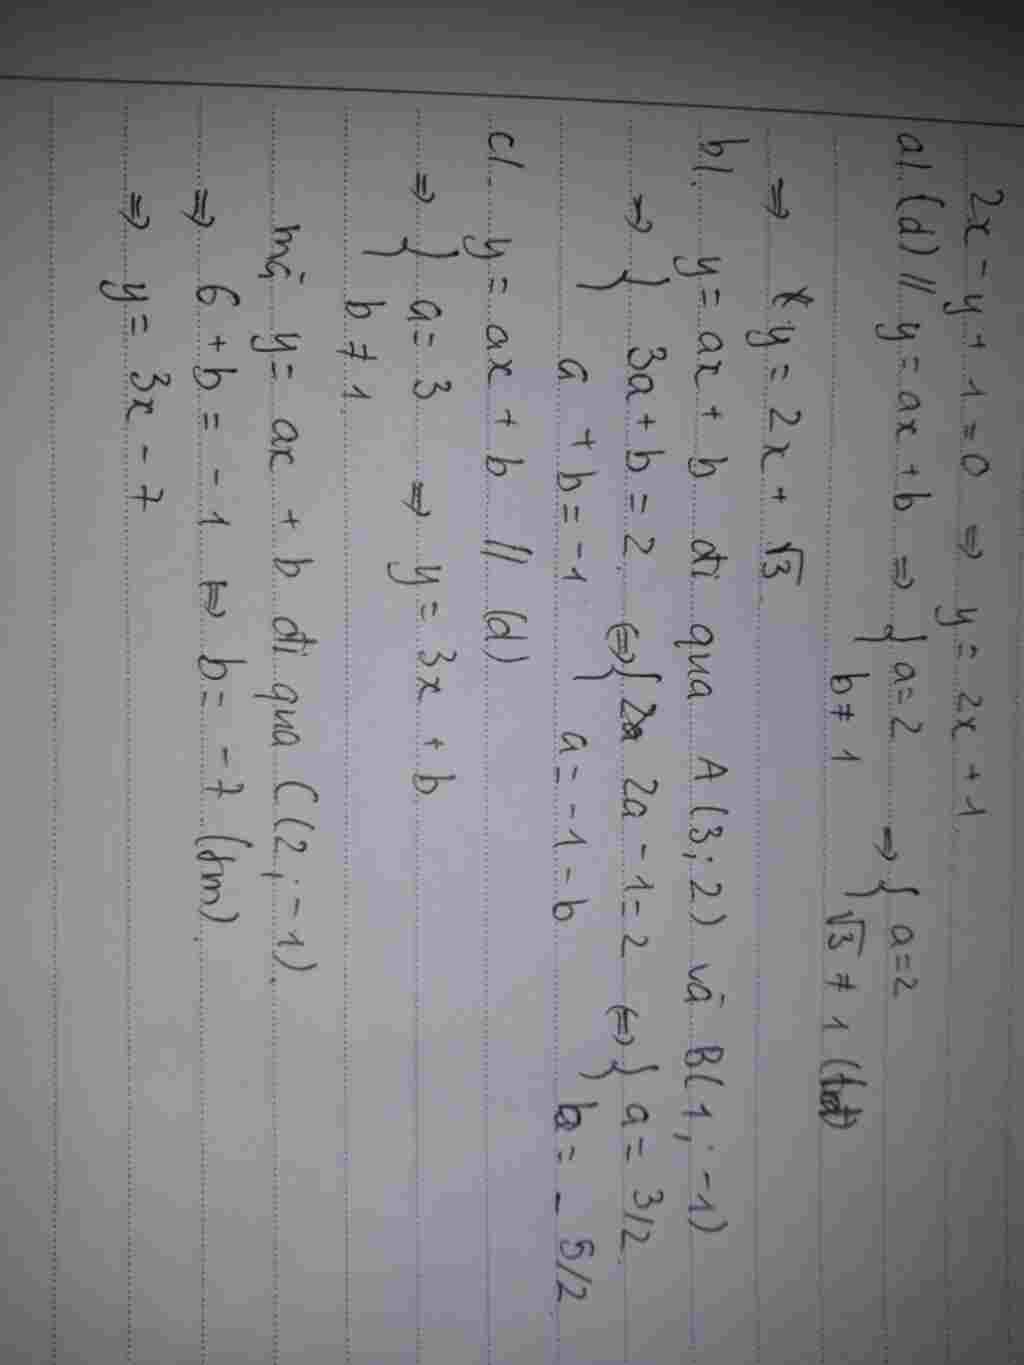 2x - y + 1 = 0 ⇒ y = 2x + 1
a/. (d) // y = ax + b ⇒ { a = 2 ⇒ { a = 2
b ≠ 1 √3 ≠ 1
⇒ * y = 2x + √3
b/. y = ax + b đi qua A(3; 2) và B(1; -1)
⇒ { 3a + b = 2 ⇔ { 2a - 1 = 2 ⇔ { a = 3/2
a + b = -1 a = -1 - b b = - 5/2
c/. y = ax + b // (d)
⇒ { a = 3 ⇒ y = 3x + b
b ≠ 1
mà y = ax + b đi qua C(2; -1)
⇒ 6 + b = -1 ⇔ b = -7 (tm)
⇒ y = 3x - 7